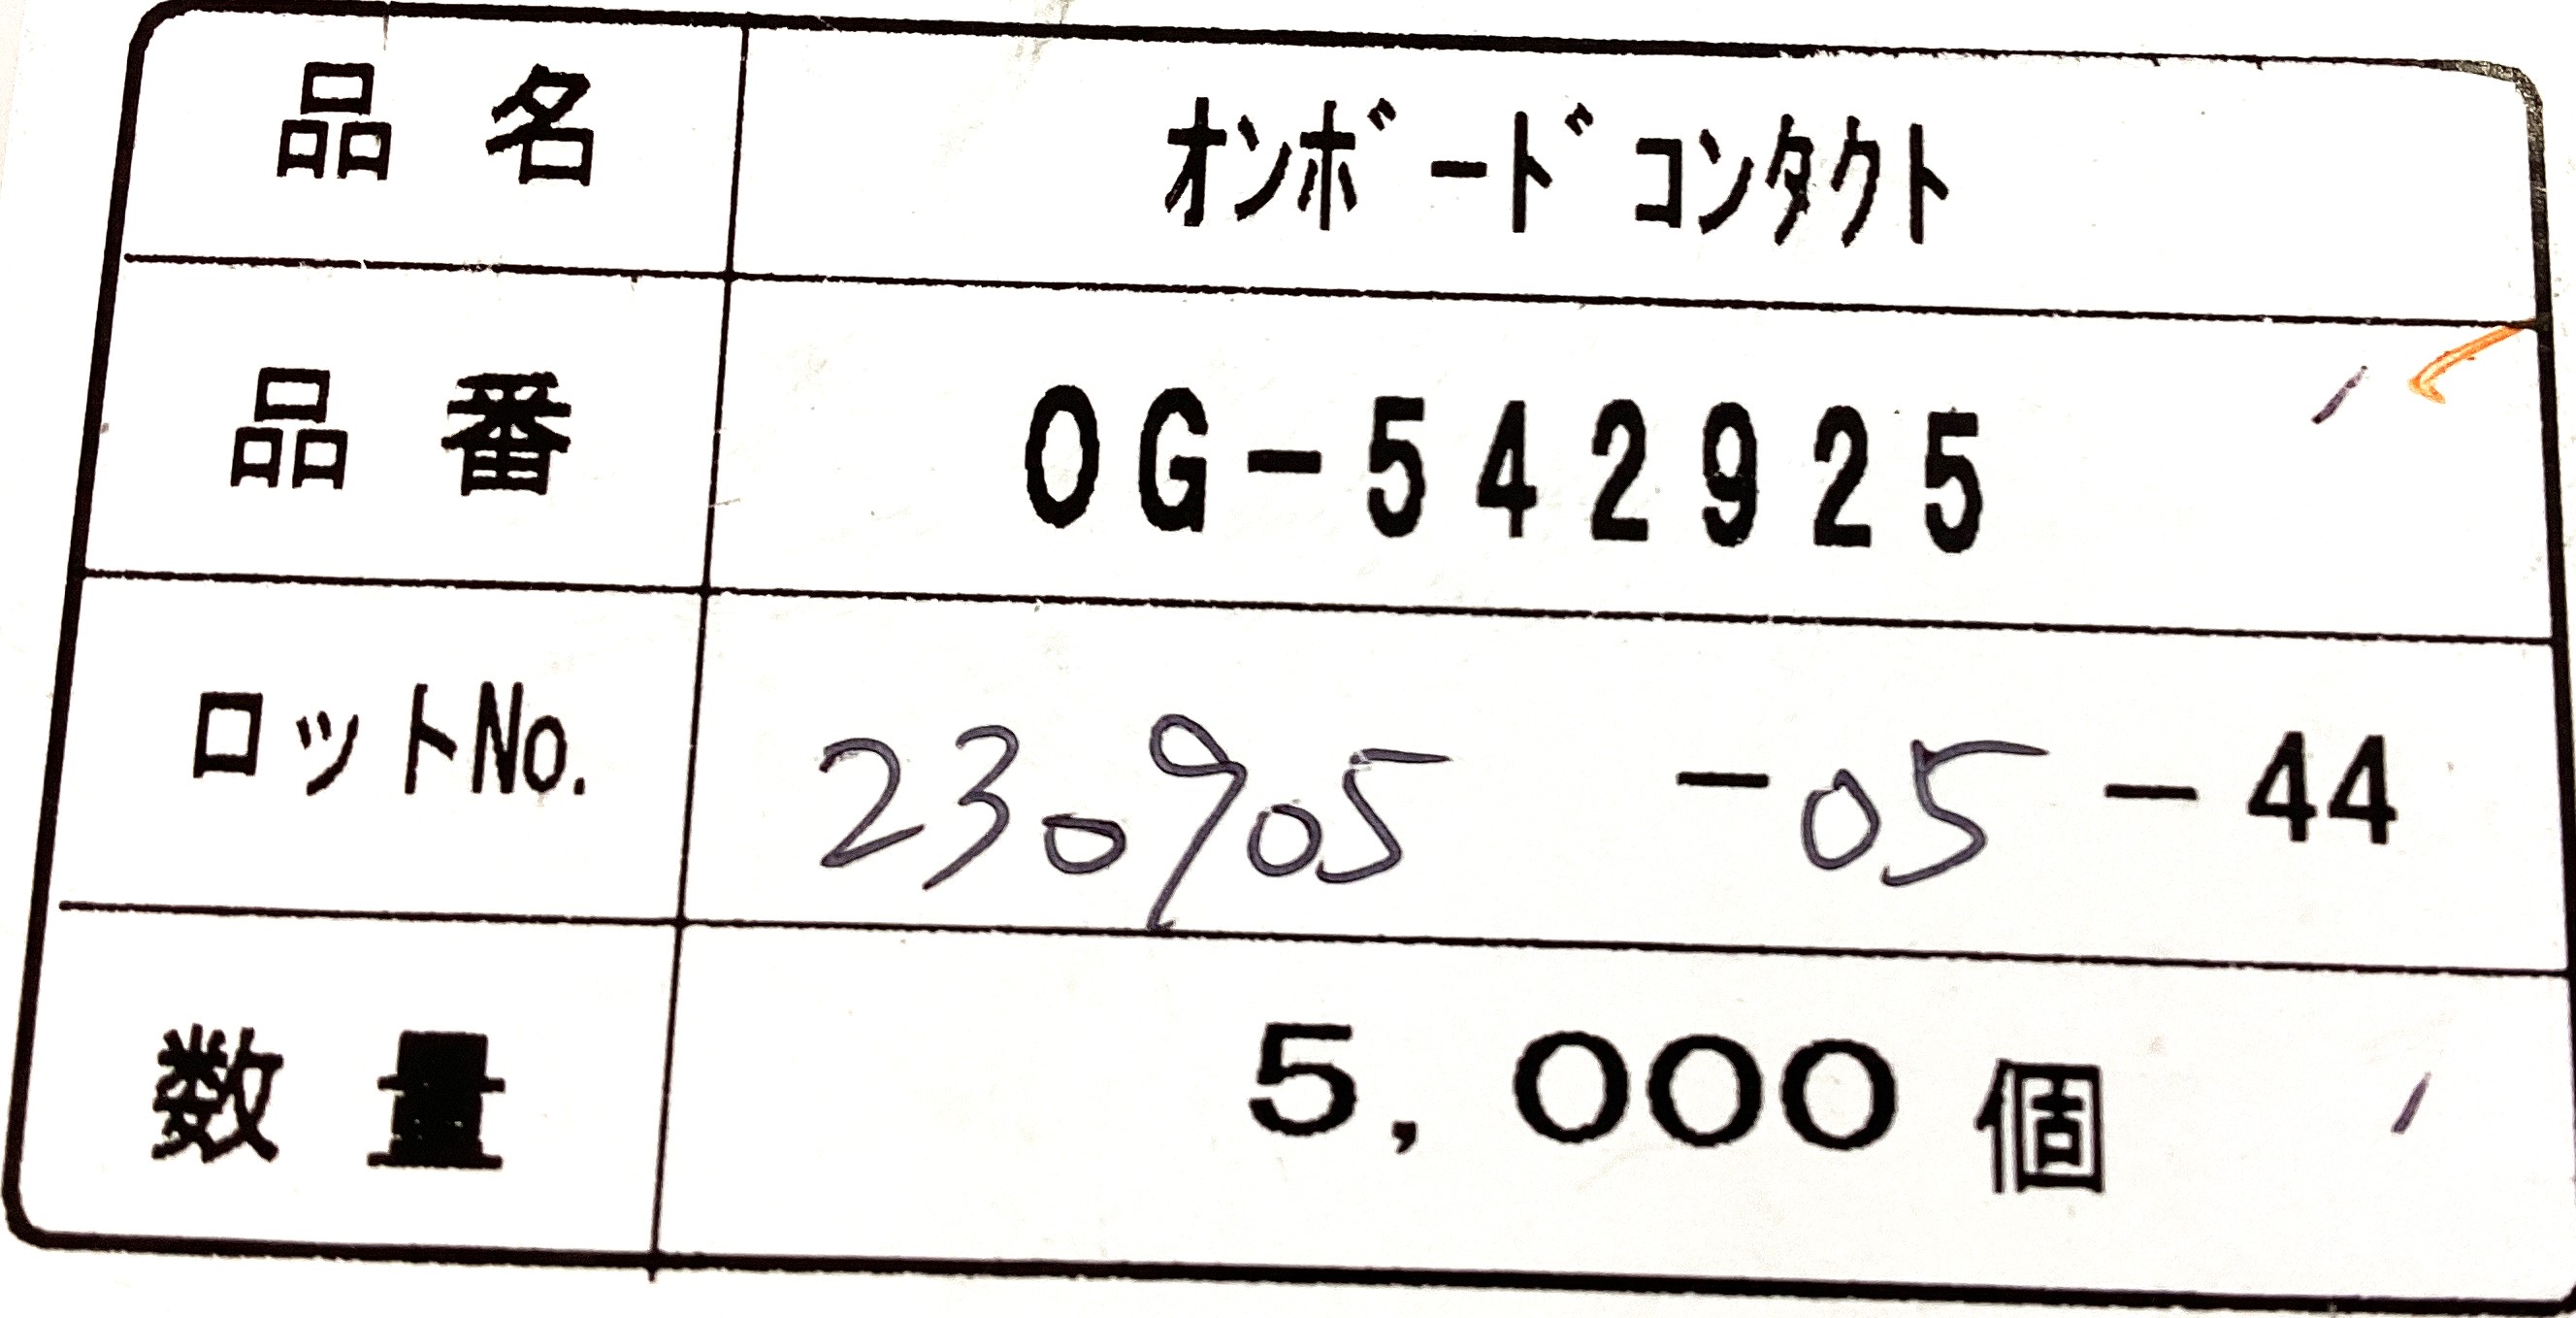 品名 ｵﾝﾎﾞｰﾄﾞｺﾝﾀｸﾄ
品番 OG-542925
ロットNo. 230905 -05-44
数量 5,000個